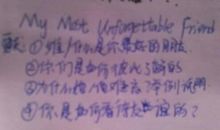 My Most Unforgettable Friend
要求:①谁/什么是你最好的朋友
②你们是如何彼此了解的
③为什么他/她难忘?举例说明
④你是如何看待友谊的?